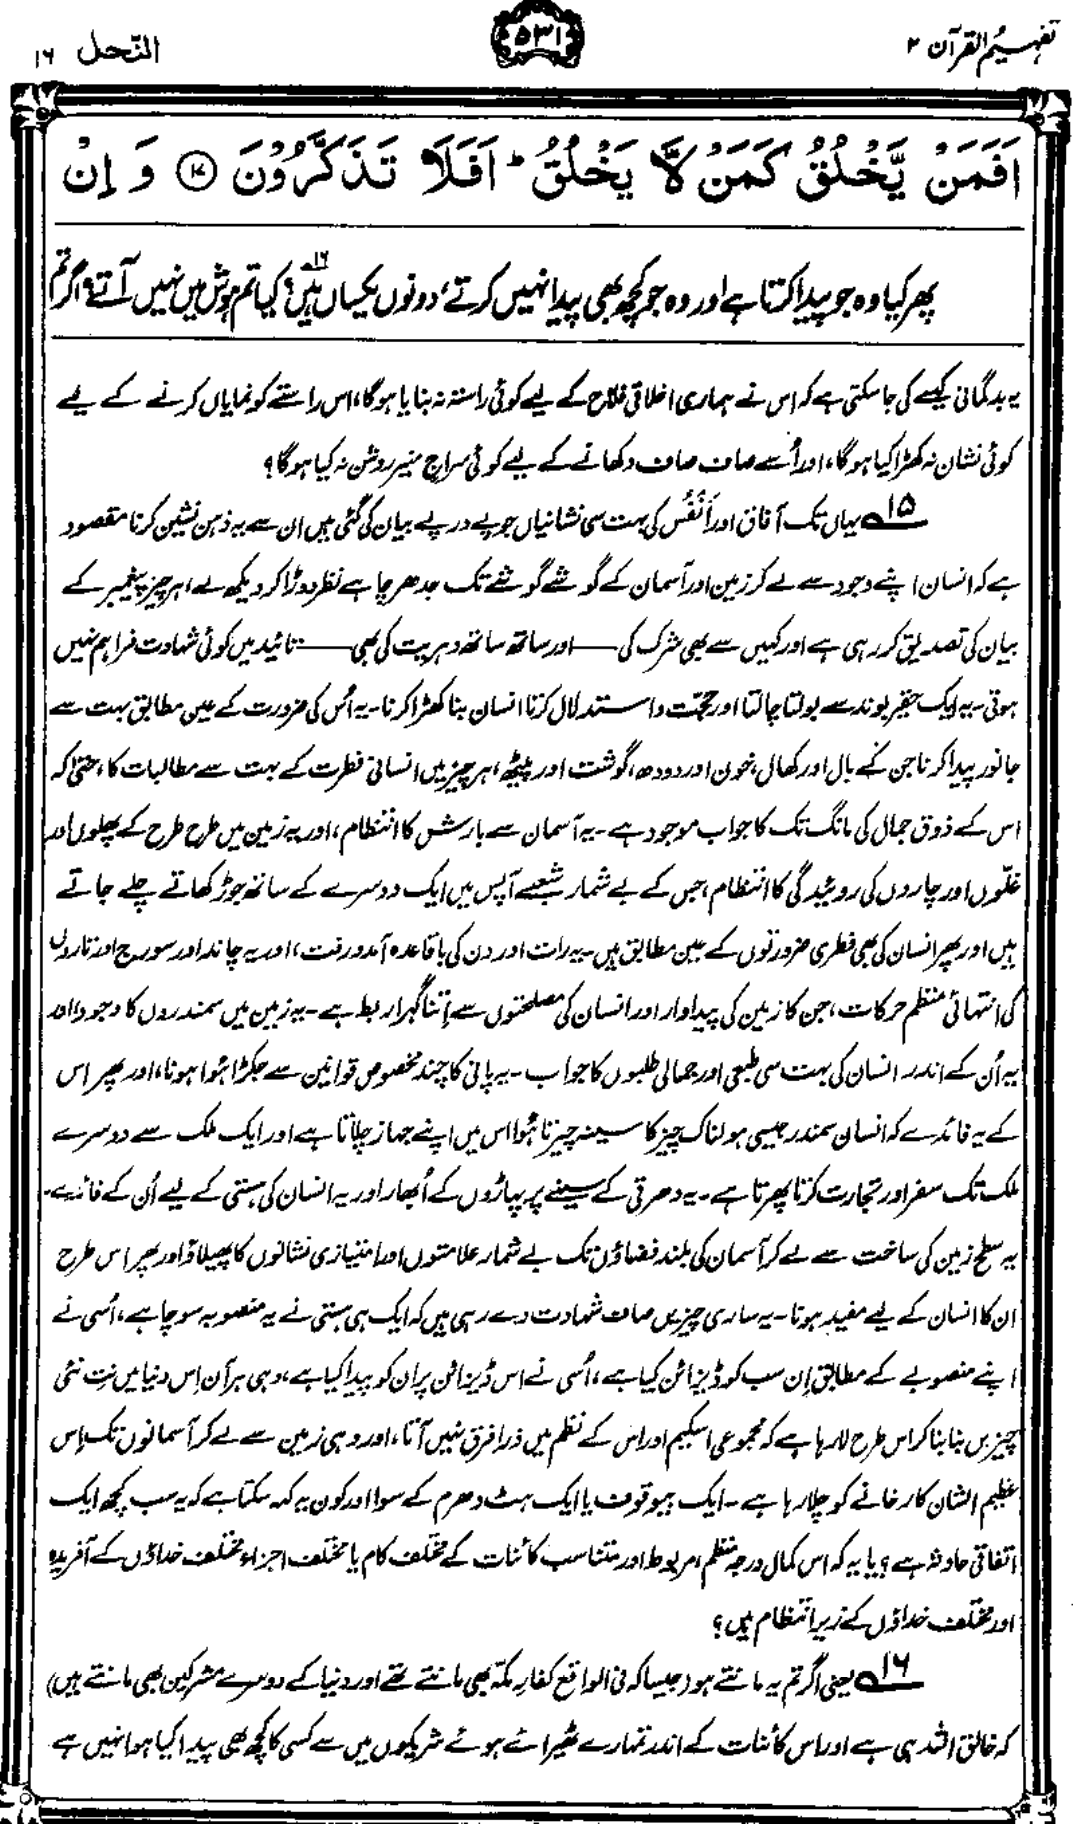 تفہیم القرآن ۲
۵۳۱
النّحل ۱۶
اَفَمَنْ يَّخْلُقُ كَمَنْ لَّا يَخْلُقُ ؕ اَفَلَا تَذَكَّرُوْنَ ﴿۱۷﴾ وَ اِنْ
پھر کیا وہ جو پیدا کرتا ہے اور وہ جو کچھ بھی پیدا نہیں کرتے، دونوں یکساں ہیں؟ ۱۶ کیا تم ہوش میں نہیں آتے؟ اگر تم
یہ بدگمانی کیسے کی جاسکتی ہے کہ اس نے ہماری اخلاقی فلاح کے لیے کوئی راستہ نہ بنایا ہوگا، اس راستے کو نمایاں کرنے کے لیے
کوئی نشان نہ کھڑا کیا ہوگا، اور اُسے صاف صاف دکھانے کے لیے کوئی سراجِ منیر روشن نہ کیا ہوگا؟
۱۵ یہاں تک آفاق اور اَنْفُس کی بہت سی نشانیاں جو پے در پے بیان کی گئی ہیں ان سے یہ ذہن نشین کرنا مقصود
ہے کہ انسان اپنے وجود سے لے کر زمین اور آسمان کے گوشے گوشے تک جدھر چاہے نظر دوڑا کر دیکھ لے، ہر چیز پیغمبر کے
بیان کی تصدیق کر رہی ہے اور کہیں سے بھی شرک کی —— اور ساتھ ساتھ دہریت کی بھی —— تائید میں کوئی شہادت فراہم نہیں
ہوتی۔ یہ ایک حقیر بوند سے بولتا چالتا اور حجّت و استدلال کرتا انسان بنا کھڑا کرنا۔ یہ اُس کی ضرورت کے عین مطابق بہت سے
جانور پیدا کرنا جن کے بال اور کھال، خون اور دودھ، گوشت اور پیٹھ، ہر چیز میں انسانی فطرت کے بہت سے مطالبات کا، حتیٰ کہ
اس کے ذوقِ جمال کی مانگ تک کا جواب موجود ہے۔ یہ آسمان سے بارش کا انتظام، اور یہ زمین میں طرح طرح کے پھلوں اور
غلّوں اور چاروں کی روئیدگی کا انتظام، جس کے بے شمار شعبے آپس میں ایک دوسرے کے ساتھ جوڑ کھاتے چلے جاتے
ہیں اور پھر انسان کی بھی فطری ضرورتوں کے عین مطابق ہیں۔ یہ رات اور دن کی باقاعدہ آمد و رفت، اور یہ چاند اور سورج اور تاروں
کی انتہائی منظم حرکات، جن کا زمین کی پیداوار اور انسان کی مصلحتوں سے اِتنا گہرا ربط ہے۔ یہ زمین میں سمندروں کا وجود اور
یہ اُن کے اندر انسان کی بہت سی طبعی اور جمالی طلبوں کا جواب۔ یہ پانی کا چند مخصوص قوانین سے جکڑا ہُوا ہونا، اور پھر اس
کے یہ فائدے کہ انسان سمندر جیسی ہولناک چیز کا سینہ چیرتا ہُوا اس میں اپنے جہاز چلاتا ہے اور ایک ملک سے دوسرے
ملک تک سفر اور تجارت کرتا پھرتا ہے۔ یہ دھرتی کے سینے پر پہاڑوں کے اُبھار اور یہ انسان کی ہستی کے لیے اُن کے فائدے۔
یہ سطح زمین کی ساخت سے لے کر آسمان کی بلند فضاؤں تک بے شمار علامتوں اور امتیازی نشانوں کا پھیلاؤ اور پھر اس طرح
ان کا انسان کے لیے مفید ہونا۔ یہ ساری چیزیں صاف شہادت دے رہی ہیں کہ ایک ہی ہستی نے یہ منصوبہ سوچا ہے، اُسی نے
اپنے منصوبے کے مطابق اِن سب کو ڈیزائن کیا ہے، اُسی نے اس ڈیزائن پر ان کو پیدا کیا ہے، وہی ہر آن اِس دنیا میں نِت نئی
چیزیں بنا بنا کر اس طرح لا رہا ہے کہ مجموعی اسکیم اور اس کے نظم میں ذرا فرق نہیں آتا، اور وہی زمین سے لے کر آسمانوں تک اِس
عظیم الشان کارخانے کو چلا رہا ہے۔ ایک بیوقوف یا ایک ہٹ دھرم کے سوا اور کون یہ کہہ سکتا ہے کہ یہ سب کچھ ایک
اتفاقی حادثہ ہے؟ یا یہ کہ اس کمال درجہ منظم، مربوط اور متناسب کائنات کے مختلف کام یا مختلف اجزاء مختلف خداؤں کے آفریدہ
اور مختلف خداؤں کے زیرِ انتظام ہیں؟
۱۶ یعنی اگر تم یہ مانتے ہو (جیسا کہ فی الواقع کفارِ مکّہ بھی مانتے تھے اور دنیا کے دوسرے مشرکین بھی مانتے ہیں)
کہ خالق اللہ ہی ہے اور اس کائنات کے اندر تمہارے ٹھیرائے ہوئے شریکوں میں سے کسی کا کچھ بھی پیدا کیا ہوا نہیں ہے